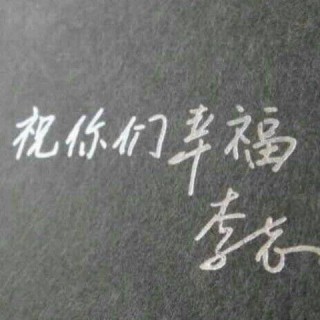 祝你们幸福
李